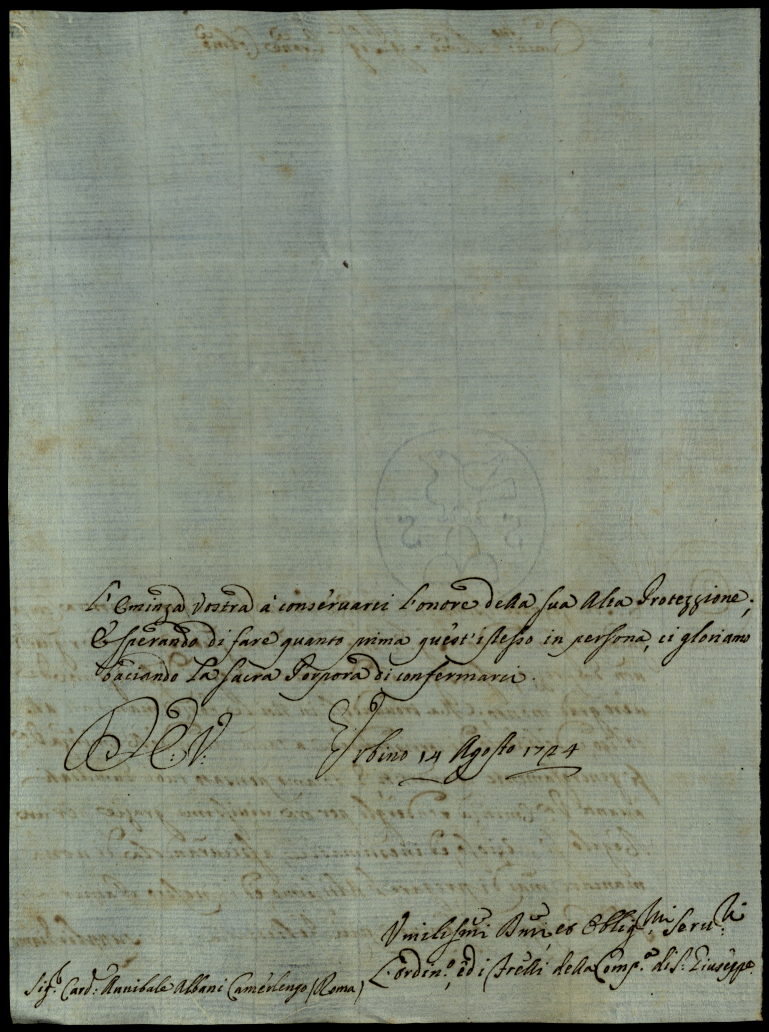 L'Eminza Vostra à conservarci l'onore della sua Alta Protezzione;
E sperando di fare quanto prima quest'istesso in persona, ci gloriamo
baciando La Sacra Porpora di confermarci.
D. E. V.
Urbino 14 Agosto 1724
Umilissmi Devmi et Obligmi Servri
L'ordin.o, ed i Frelli della Comp.a di S. Giuseppe
Sigr. Card: Annibale Albani Camerlengo (Roma)